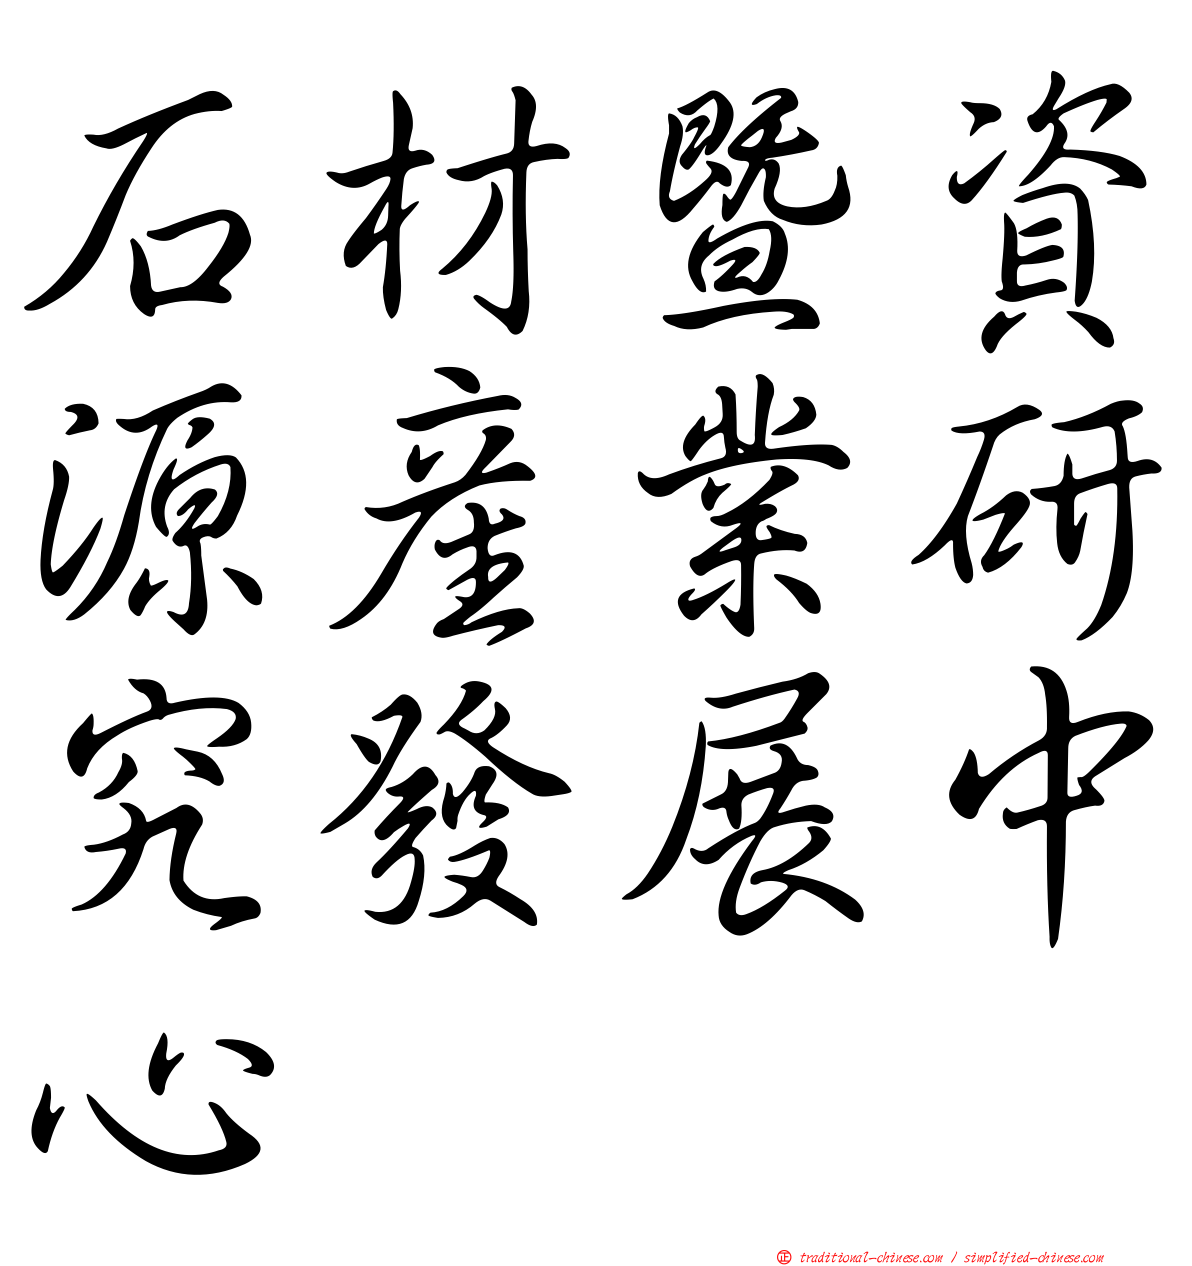 石材暨資
源産業研
究發展中
心
正 traditional-chinese.com / simplified-chinese.com